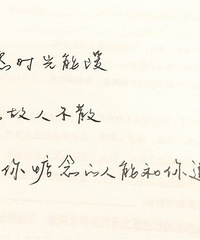 时光能缓
故人不散
你惦念的人能和你道